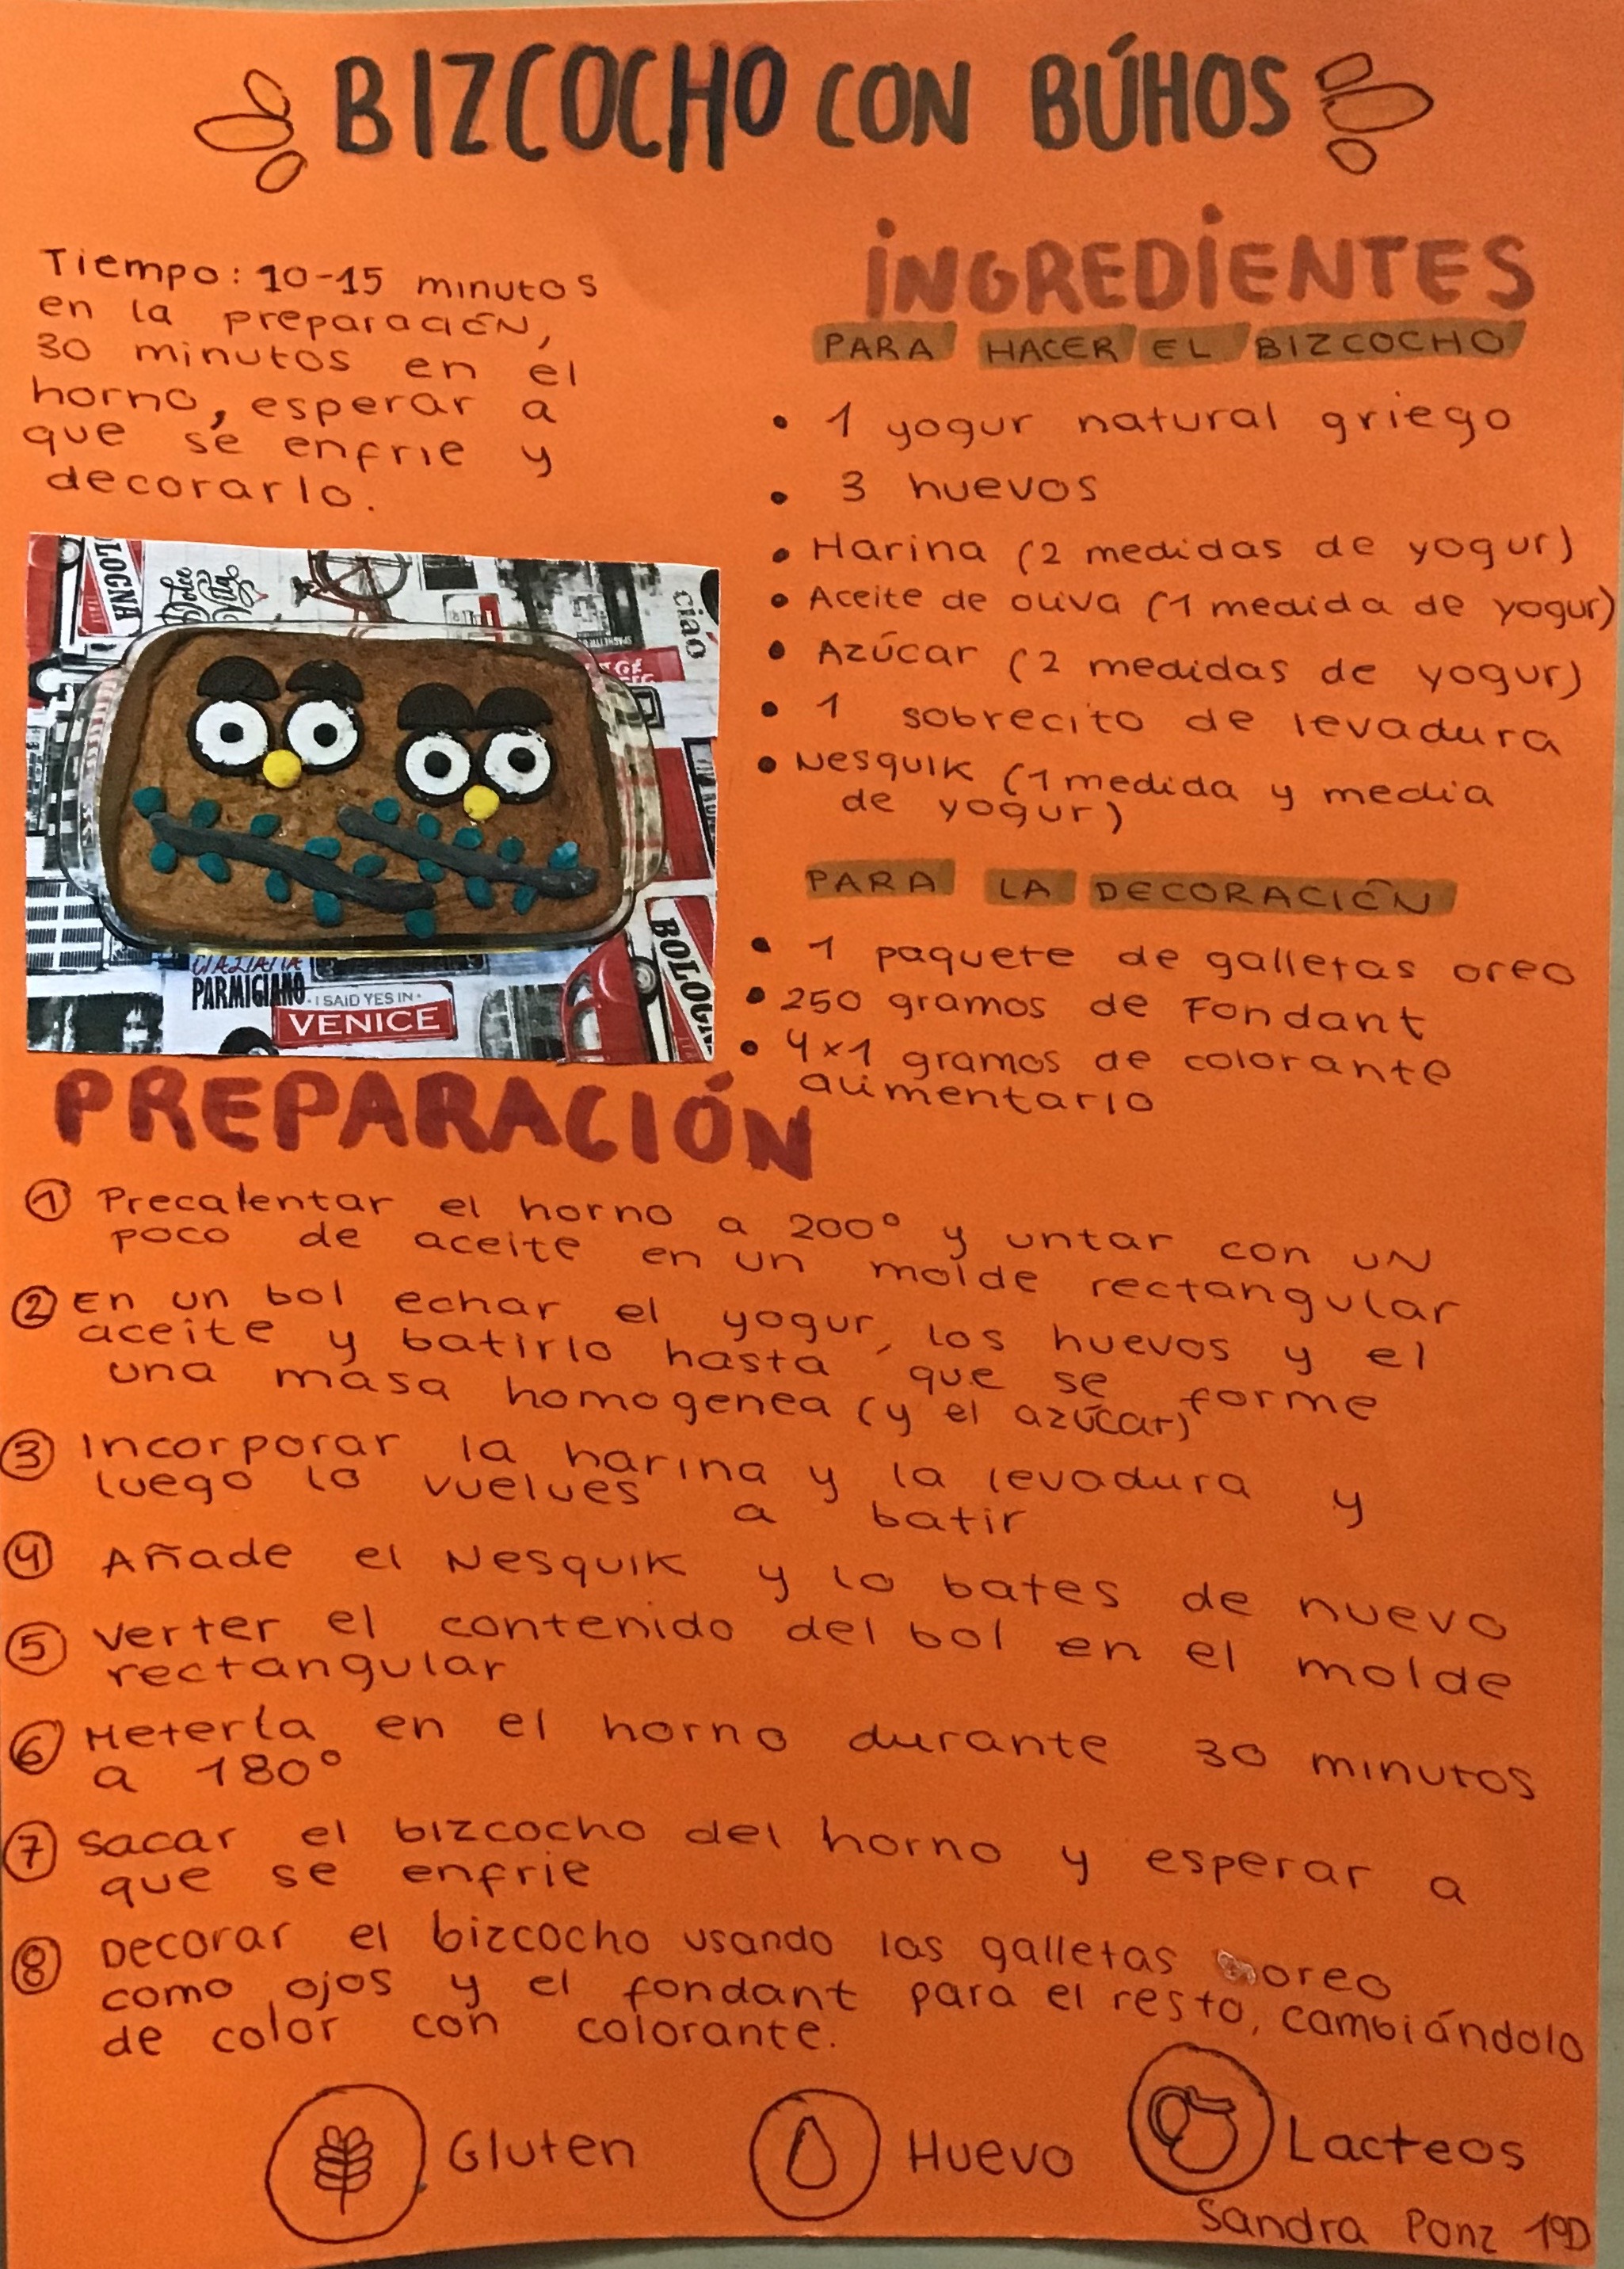 BIZCOCHO CON BÚHOS
Tiempo: 10-15 minutos
en la preparación,
30 minutos en el
horno, esperar a
que se enfrie y
decorarlo.
INGREDIENTES
PARA HACER EL BIZCOCHO
• 1 yogur natural griego
• 3 huevos
• Harina (2 medidas de yogur)
• Aceite de oliva (1 medida de yogur)
• Azúcar (2 medidas de yogur)
• 1 sobrecito de levadura
• Nesquik (1 medida y media
de yogur)
PARA LA DECORACIÓN
• 1 paquete de galletas oreo
• 250 gramos de Fondant
• 4x1 gramos de colorante
alimentario
LOGNA
Dolce
Vita
ciao
PARMIGIANO
I SAID YES IN
VENICE
BOLOGN
PREPARACIÓN
1 Precalentar el horno a 200º y untar con un
poco de aceite en un molde rectangular
2 En un bol echar el yogur, los huevos y el
aceite y batirlo hasta que se forme
una masa homogenea (y el azúcar)
3 Incorporar la harina y la levadura y
luego lo vuelves a batir
4 Añade el Nesquik y lo bates de nuevo
5 Verter el contenido del bol en el molde
rectangular
6 Meterla en el horno durante 30 minutos
a 180º
7 Sacar el bizcocho del horno y esperar a
que se enfrie
8 Decorar el bizcocho usando las galletas oreo
como ojos y el fondant para el resto, cambiándolo
de color con colorante.
Gluten
Huevo
Lacteos
Sandra Ponz 1ºD